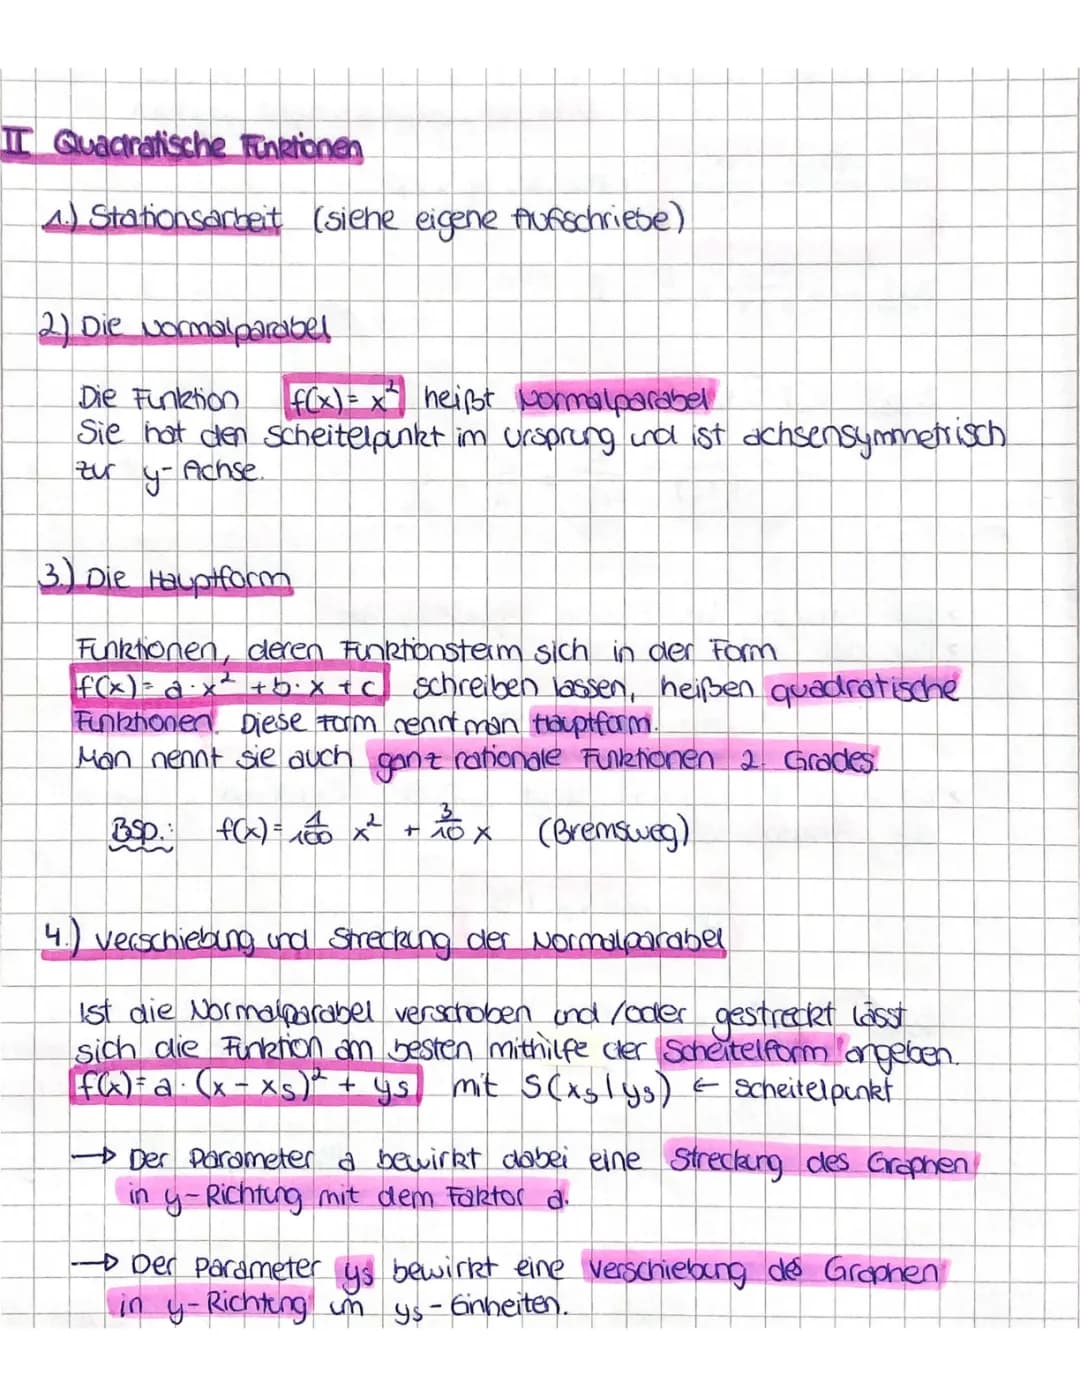 II Quadratische Funktionen
1.) Stationsarbeit (siehe eigene Aufschriebe)
2) Die Normalparabel
Die Funktion f(x) = x² heißt Normalparabel
Sie hat den Scheitelpunkt im Ursprung und ist achsensymmetrisch
zur y-Achse.
3.) Die Hauptform
Funktionen, deren Funktionsterm sich in der Form
f(x) = a·x² + b·x + c schreiben lassen, heißen quadratische
Funktionen. Diese Form nennt man Hauptform.
Man nennt sie auch ganz rationale Funktionen 2. Grades.
Bsp.: f(x) = 1/100 x² + 3/10 x (Bremsweg)
4.) Verschiebung und Streckung der Normalparabel
Ist die Normalparabel verschoben und /oder gestreckt lässt
sich die Funktion am besten mithilfe der Scheitelform angeben.
f(x) = a · (x - xs)² + ys mit S(xs|ys) ← Scheitelpunkt
→ Der Parameter a bewirkt dabei eine Streckung des Graphen
in y-Richtung mit dem Faktor a.
→ Der Parameter ys bewirkt eine Verschiebung des Graphen
in y-Richtung um ys-Einheiten.